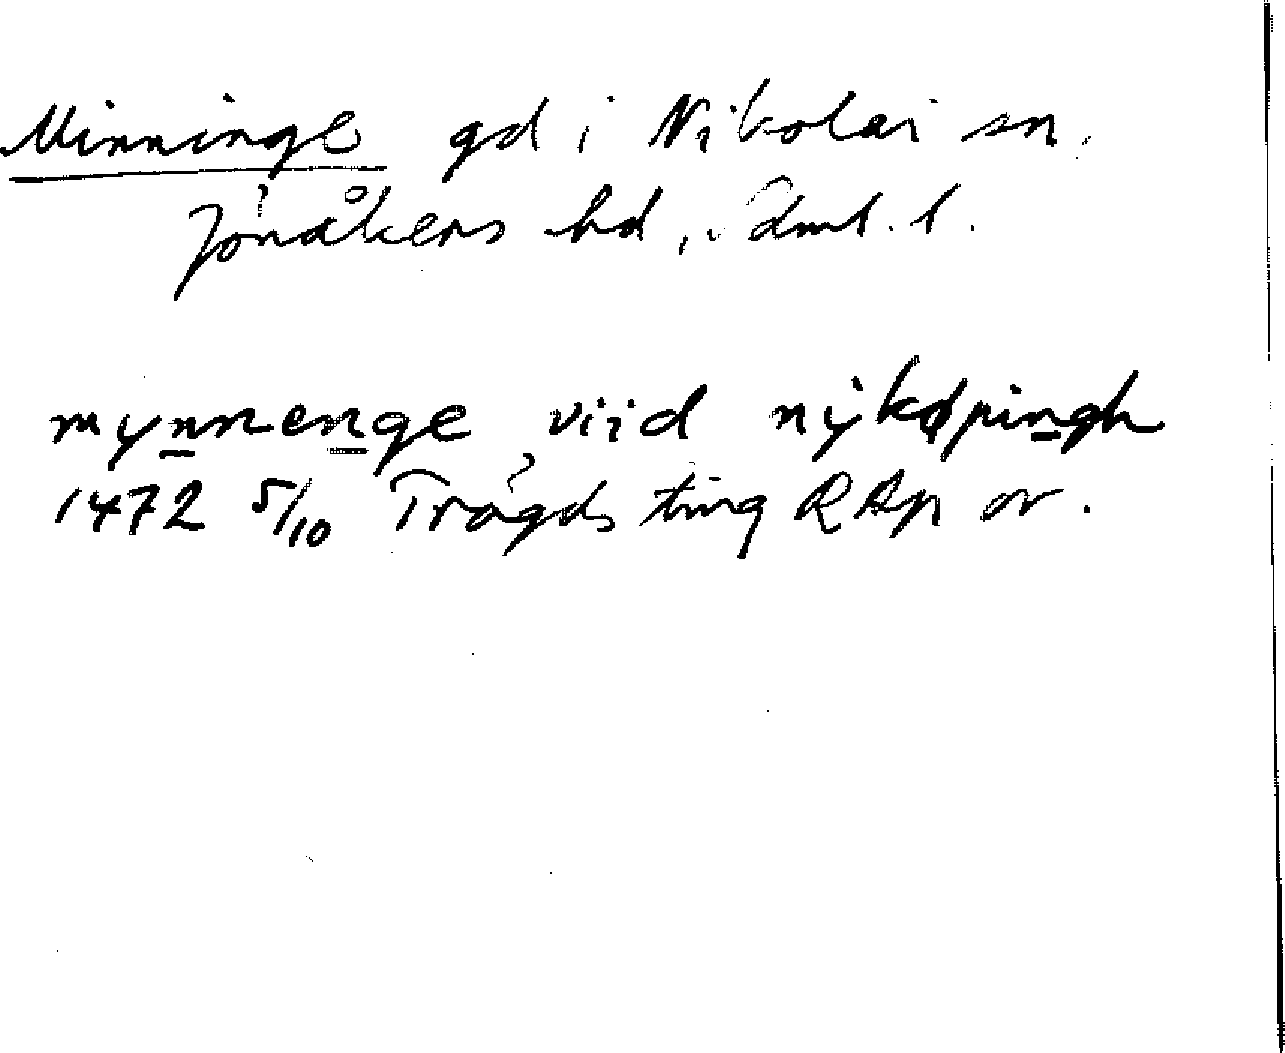 Minninge gd i Nikolai sn.
Jönåkers hd, Sdml. l.
mynnenge viid nykøpingh
1472 5/10 Trögds ting RAp or.